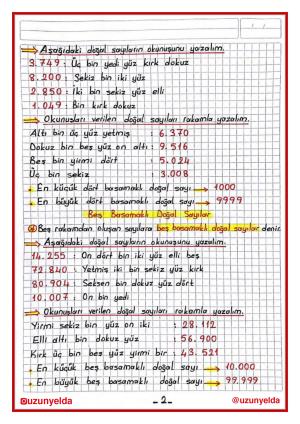 Aşağıdaki doğal sayıların okunuşunu yazalım.
3.749 : Üç bin yedi yüz kırk dokuz
8.200 : Sekiz bin iki yüz
2.850 : İki bin sekiz yüz elli
1.049 : Bin kırk dokuz
Okunuşları verilen doğal sayıları rakamla yazalım.
Altı bin üç yüz yetmiş : 6.370
Dokuz bin beş yüz on altı : 9.516
Beş bin yirmi dört : 5.024
Üç bin sekiz : 3.008
En küçük dört basamaklı doğal sayı → 1000
En büyük dört basamaklı doğal sayı → 9999
Beş Basamaklı Doğal Sayılar
Beş rakamdan oluşan sayılara beş basamaklı doğal sayılar denir.
Aşağıdaki doğal sayıların okunuşunu yazalım.
14.255 : On dört bin iki yüz elli beş
72.840 : Yetmiş iki bin sekiz yüz kırk
80.904 : Seksen bin dokuz yüz dört
10.007 : On bin yedi
Okunuşları verilen doğal sayıları rakamla yazalım.
Yirmi sekiz bin yüz on iki : 28.112
Elli altı bin dokuz yüz : 56.900
Kırk üç bin beş yüz yirmi bir : 43.521
En küçük beş basamaklı doğal sayı → 10.000
En büyük beş basamaklı doğal sayı → 99.999
@uzunyelda
-2-
@uzunyelda